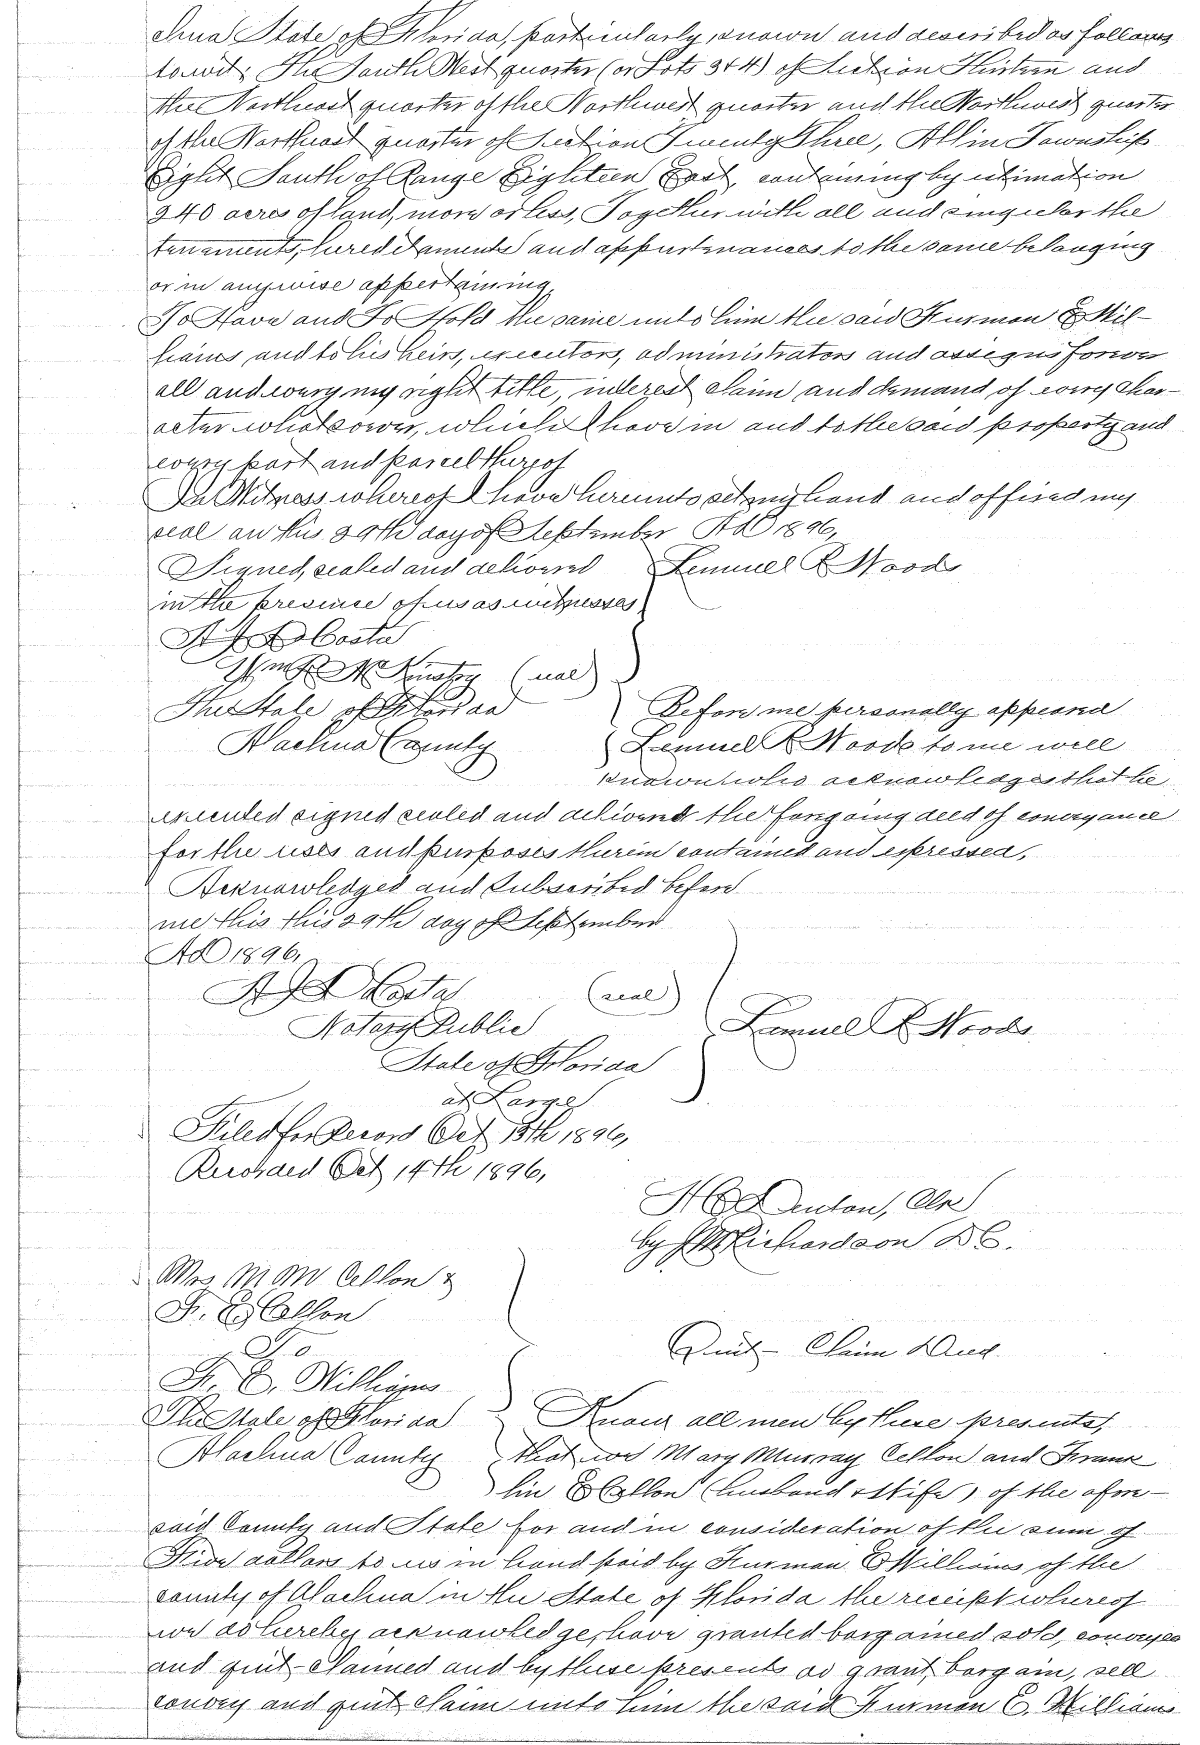 chua State of Florida, particularly, known and described as follows
towit; The South West quarter (or Lots 3+4) of Section Thirteen and
the Northeast quarter of the Northwest quarter and the Northwest quarter
of the Northeast quarter of Section Twenty Three, All in Township
Eight South of Range Eighteen East, containing by estimation
240 acres of land, more or less, Together with all and singular the
tenements, hereditaments and appurtenances to the same belonging
or in anywise appertaining,
To Have and To Hold the same unto him the said Furman E Wil-
liams, and to his heirs, executors, administrators and assigns forever
all and every my right title, interest claim and demand of every char-
acter whatsoever, which I have in and to the said property and
every part and parcel thereof
In Witness whereof I have hereunto set my hand and affixed my
seal on this 29th day of September AD 1896,
Signed, sealed and delivered Lemuel R Woods
in the presence of us as witnesses
A J DaCosta
Wm R McKinstry (seal)
The State of Florida Before me personally appeared
Alachua County Lemuel R Woods to me well
known who acknowledges that he
executed signed sealed and delivered the foregoing deed of conveyance
for the uses and purposes therein contained and expressed,
Acknowledged and Subscribed before
me this this 29th day of September
AD 1896,
A J DaCosta (seal)
Notary Public Lemuel R Woods
State of Florida
at Large
Filed for Record Oct 13th 1896,
Recorded Oct 14th 1896,
H C Denton, Clk
by Richardson DC.
Mrs M M Cellon &
F. E Cellon
To
F. E. Williams Quit-Claim Deed.
The State of Florida Know all men by these presents,
Alachua County that we Mary Murray Cellon and Frank
lin E Cellon (husband & Wife) of the afore-
said County and State for and in consideration of the sum of
Five dollars to us in hand paid by Furman E Williams of the
county of Alachua in the State of Florida the receipt whereof
we do hereby acknowledge, have granted bargained sold, conveyed
and quit-claimed and by these presents do grant, bargain, sell
convey and quit claim unto him the said Furman E. Williams